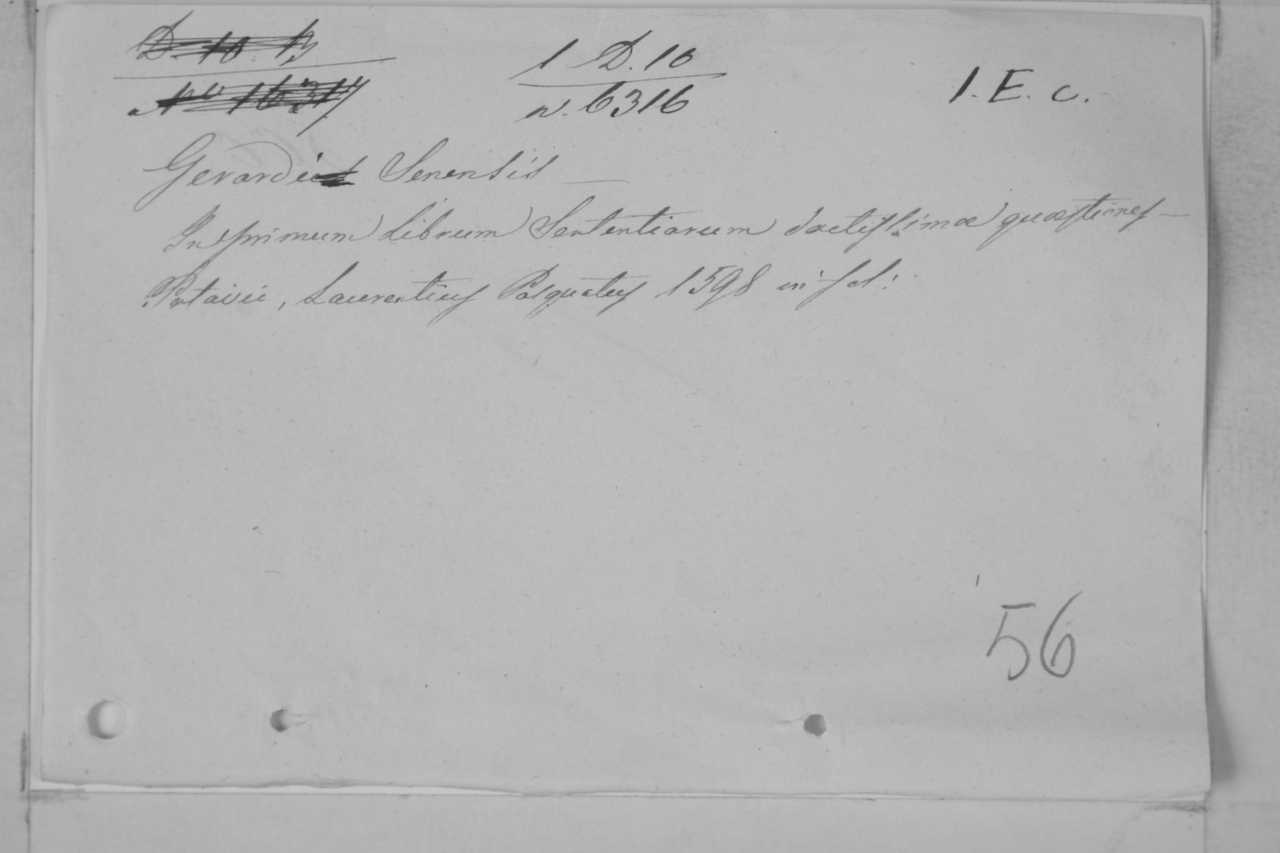 1 D. 10
n. 6316
1. E. c.
Gerardi Senensis —
In primum Librum Sententiarum doctissimæ quæstiones —
Patavii, Laurentius Pasquatus 1598 in fol:
56